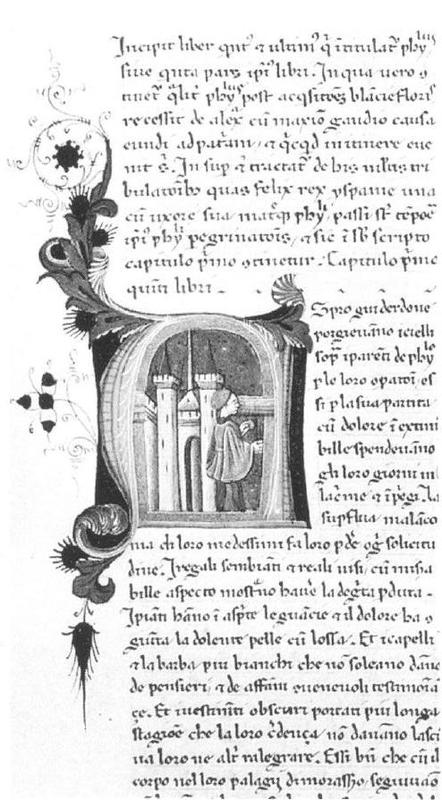 Incipit liber qnt' & ultim' q ītitulat' phy
siue quita pars ipi' libri. In qua uero 9
tinet' qlit' phy' post acqsitōes blācie floris
recessit de alex cū maxio gaudio causa
eundi ad patam, & qcqd in itinere eue
nit s. In sup & tractat' de his mltis tri
bulatoibz quas felix rex yspanie una
cū uxore sua matq phy' passi st' tēpoe
ipi' phy' pegrinatois, & sic ī sb scripto
capitulo pmo 9tinetur. Capitulo pmo
quiti libri.
porgieuano icielli
sop iparēti de phy
p le loro opatoi, es
si p la sua partita
cū dolore ī extimi
bille spendeuano
gli loro giorni in
lacme & ī pegi. la
supflua malāco
nia ch loro medessimi fa loro pde og sollicitu
dine. I regali sembiati & reali uisi, cū misa
bille aspecto mostno hauē la degta pduta.
I piati hano ī aspte le guācie & il dolore ha 9
giūta la dolente pelle cū lossa. Et icapelli
& la barba piu bianchi che no soleano dāno
de pensieri, & de affani sueneuoli testimoīā
ce. Et i uestimēti obscuri portati piu longa
stagioē che la loro cdença, no dauano lasci
ua loro ne alt ralegrare. Essi bn che cū il
corpo nel loro palagii dimorassō, seguiuāo